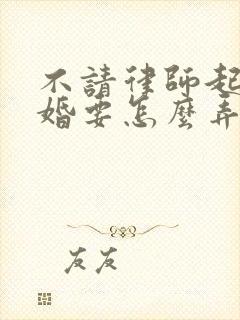 不請律師起
婚要怎麼弄
友友